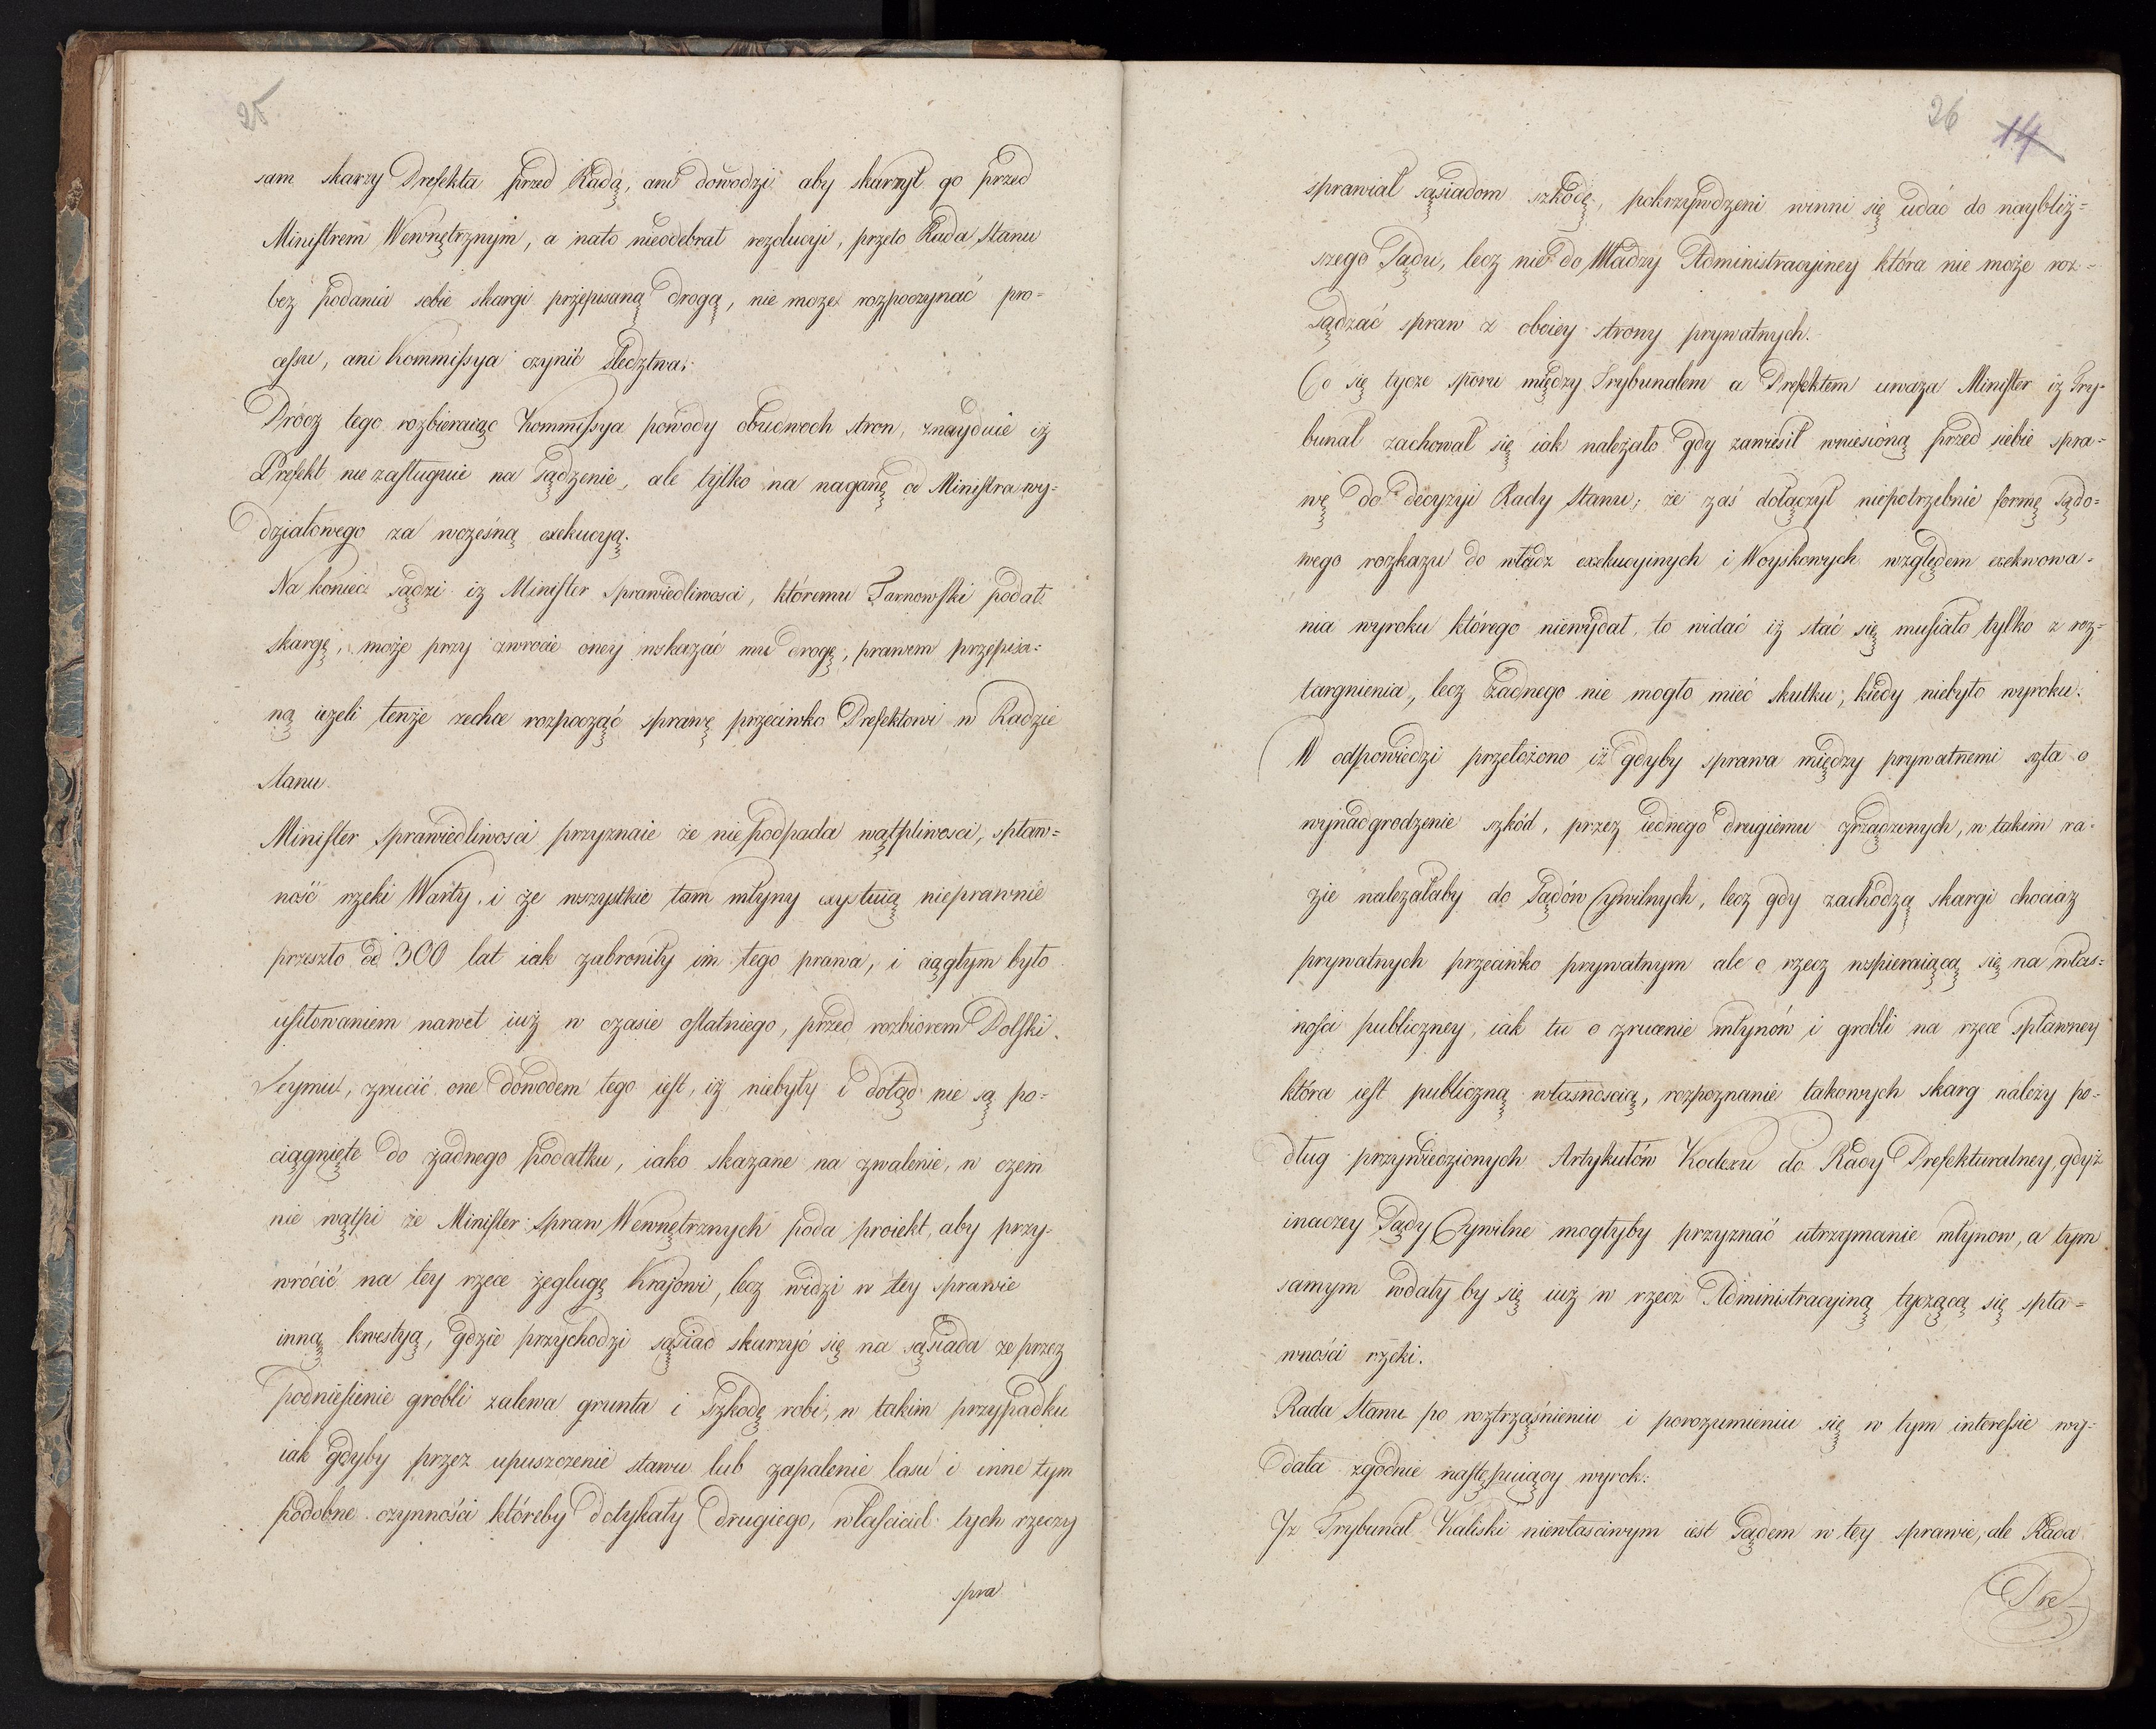 25
sam skarzy Prefekta przed Radą, ani dowodzi aby skarzył go przed
Ministrem Wewnętrznym, a nato nieodebrał rezolucyi, przeto Rada Stanu
bez podania sobie skargi przepisaną drogą, nie może rozpoczynać pro=
cessu, ani Kommissya czynić śledztwa.
Prócz tego rozbieraiąc Kommissya powody obudwoch stron, znayduie iż
Prefekt nie zasługuie na sądzenie, ale tylko na naganę od Ministra wy=
działowego za wczesną exekucyą.
Na koniec sądzi iż Minister Sprawiedliwosci, któremu Tarnowski podał
skargę, może przy zwrocie oney wskazać mu drogę, prawem przepisa=
ną ieżeli tenże zechce rozpocząć sprawę przeciwko Prefektowi w Radzie
Stanu.
Minister Sprawiedliwosci przyznaie że nie podpada wątpliwosci, spław=
ność rzeki Warty, i że wszystkie tam młyny exystuią nieprawnie
przeszło od 300 lat iak zabroniły im tego prawa, i ciągłym było
usiłowaniem nawet iuż w czasie ostatniego, przed rozbiorem Polski,
Seymu, zrucić one dowodem tego iest, iż niebyły i dotąd nie są po=
ciągnięte do żadnego podatku, iako skazane na zwalenie, w czem
nie wątpi że Minister Spraw Wewnętrznych poda proiekt, aby przy=
wrócić na tey rzece żeglugę Krajowi, lecz widzi w tey sprawie
inną kwestyą, gdzie przychodzi sąsiad skarzyć się na sąsiada że przez
podniesienie grobli zalewa grunta i szkodę robi, w takim przypadku
iak gdyby przez upuszczenie stawu lub zapalenie lasu i inne tym
podobne czynności któreby dotykały drugiego, właściciel tych rzeczy
spra
26 14
sprawiał sąsiadom szkodę, pokrzywdzeni winni się udać do naybliż=
szego Sądu, lecz nie do Władzy Administracyiney która nie może roz=
sądzać spraw z oboiey strony prywatnych.
Co się tycze sporu między Trybunałem a Prefektem uważa Minister iż Try=
bunał zachował się iak należało gdy zawiesił wniesioną przed siebie spra=
wę do decyzyi Rady Stanu; że zaś dołączył niepotrzebnie formę sądo=
wego rozkazu do władz exekucyinych i Woyskowych względem exekwowa=
nia wyroku którego niewydał, to widać iż stać się musiało tylko z roz=
targnienia, lecz żadnego nie mogło mieć skutku, kiedy niebyło wyroku.
W odpowiedzi przełożono iż gdyby sprawa między prywatnemi szła o
wynadgrodzenie szkód, przez iednego drugiemu zrządzonych, w takim ra=
zie należałaby do Sądów Cywilnych, lecz gdy zachodzą skargi chociaż
prywatnych przeciwko prywatnym ale o rzecz wspieraiącą się na włas=
ności publiczney, iak tu o zrucenie młynów i grobli na rzece spławney
która iest publiczną własnoscią, rozpoznanie takowych skarg należy po=
dług przywiedzionych Artykułów Kodexu do Rady Prefekturalney, gdyż
inaczey Sądy Cywilne mogłyby przyznać utrzymanie młynow, a tym
samym wdały by się iuż w rzecz Administracyiną tyczącą się spła=
wności rzeki.
Rada Stanu po roztrząśnieniu i porozumieniu się w tym interessie wy=
dała zgodnie następuiący wyrok:
Iż Trybunał Kaliski niewłasciwym iest Sądem w tey sprawie, ale Rada
Pre